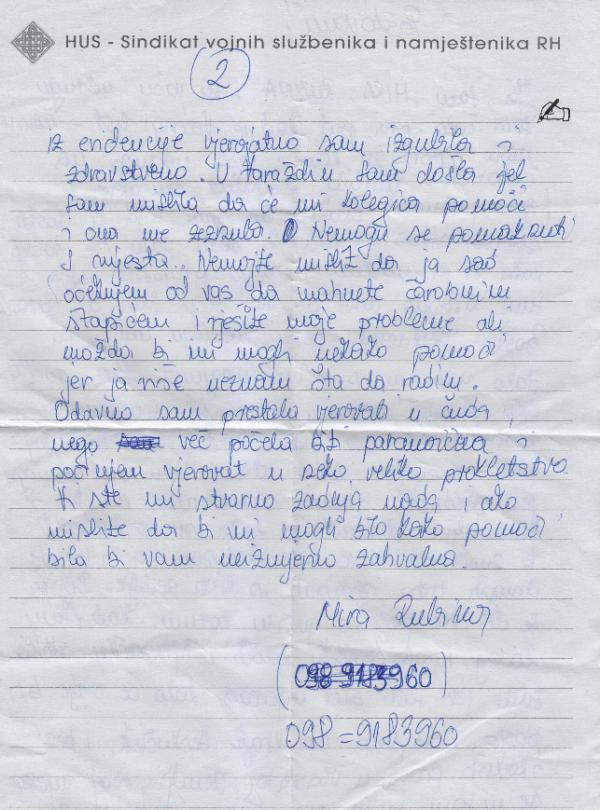 HUS - Sindikat vojnih službenika i namještenika RH
2
iz evidencije vjerojatno sam izgubila i
zdravstveno. U Varaždin sam došla jel
sam mislila da će mi kolegica pomoći
i ona me zeznula. Nemogu se pomaknuti
s mjesta. Nemojte mislit da ja sad
očekujem od vas da mahnete čarobnim
štapićem i riješite moje probleme ali
možda bi mi mogli nekako pomoći
jer ja više neznam šta da radim.
Odavno sam prestala vjerovati u čuda,
nego već počela biti paranoična i
počinjem vjerovat u neko veliko prokletstvo.
Vi ste mi stvarno zadnja nada i ako
mislite da bi mi mogli bilo kako pomoći
bila bi vam neizmjerno zahvalna.
Mira Rubina
(098 9183960)
098=9183960